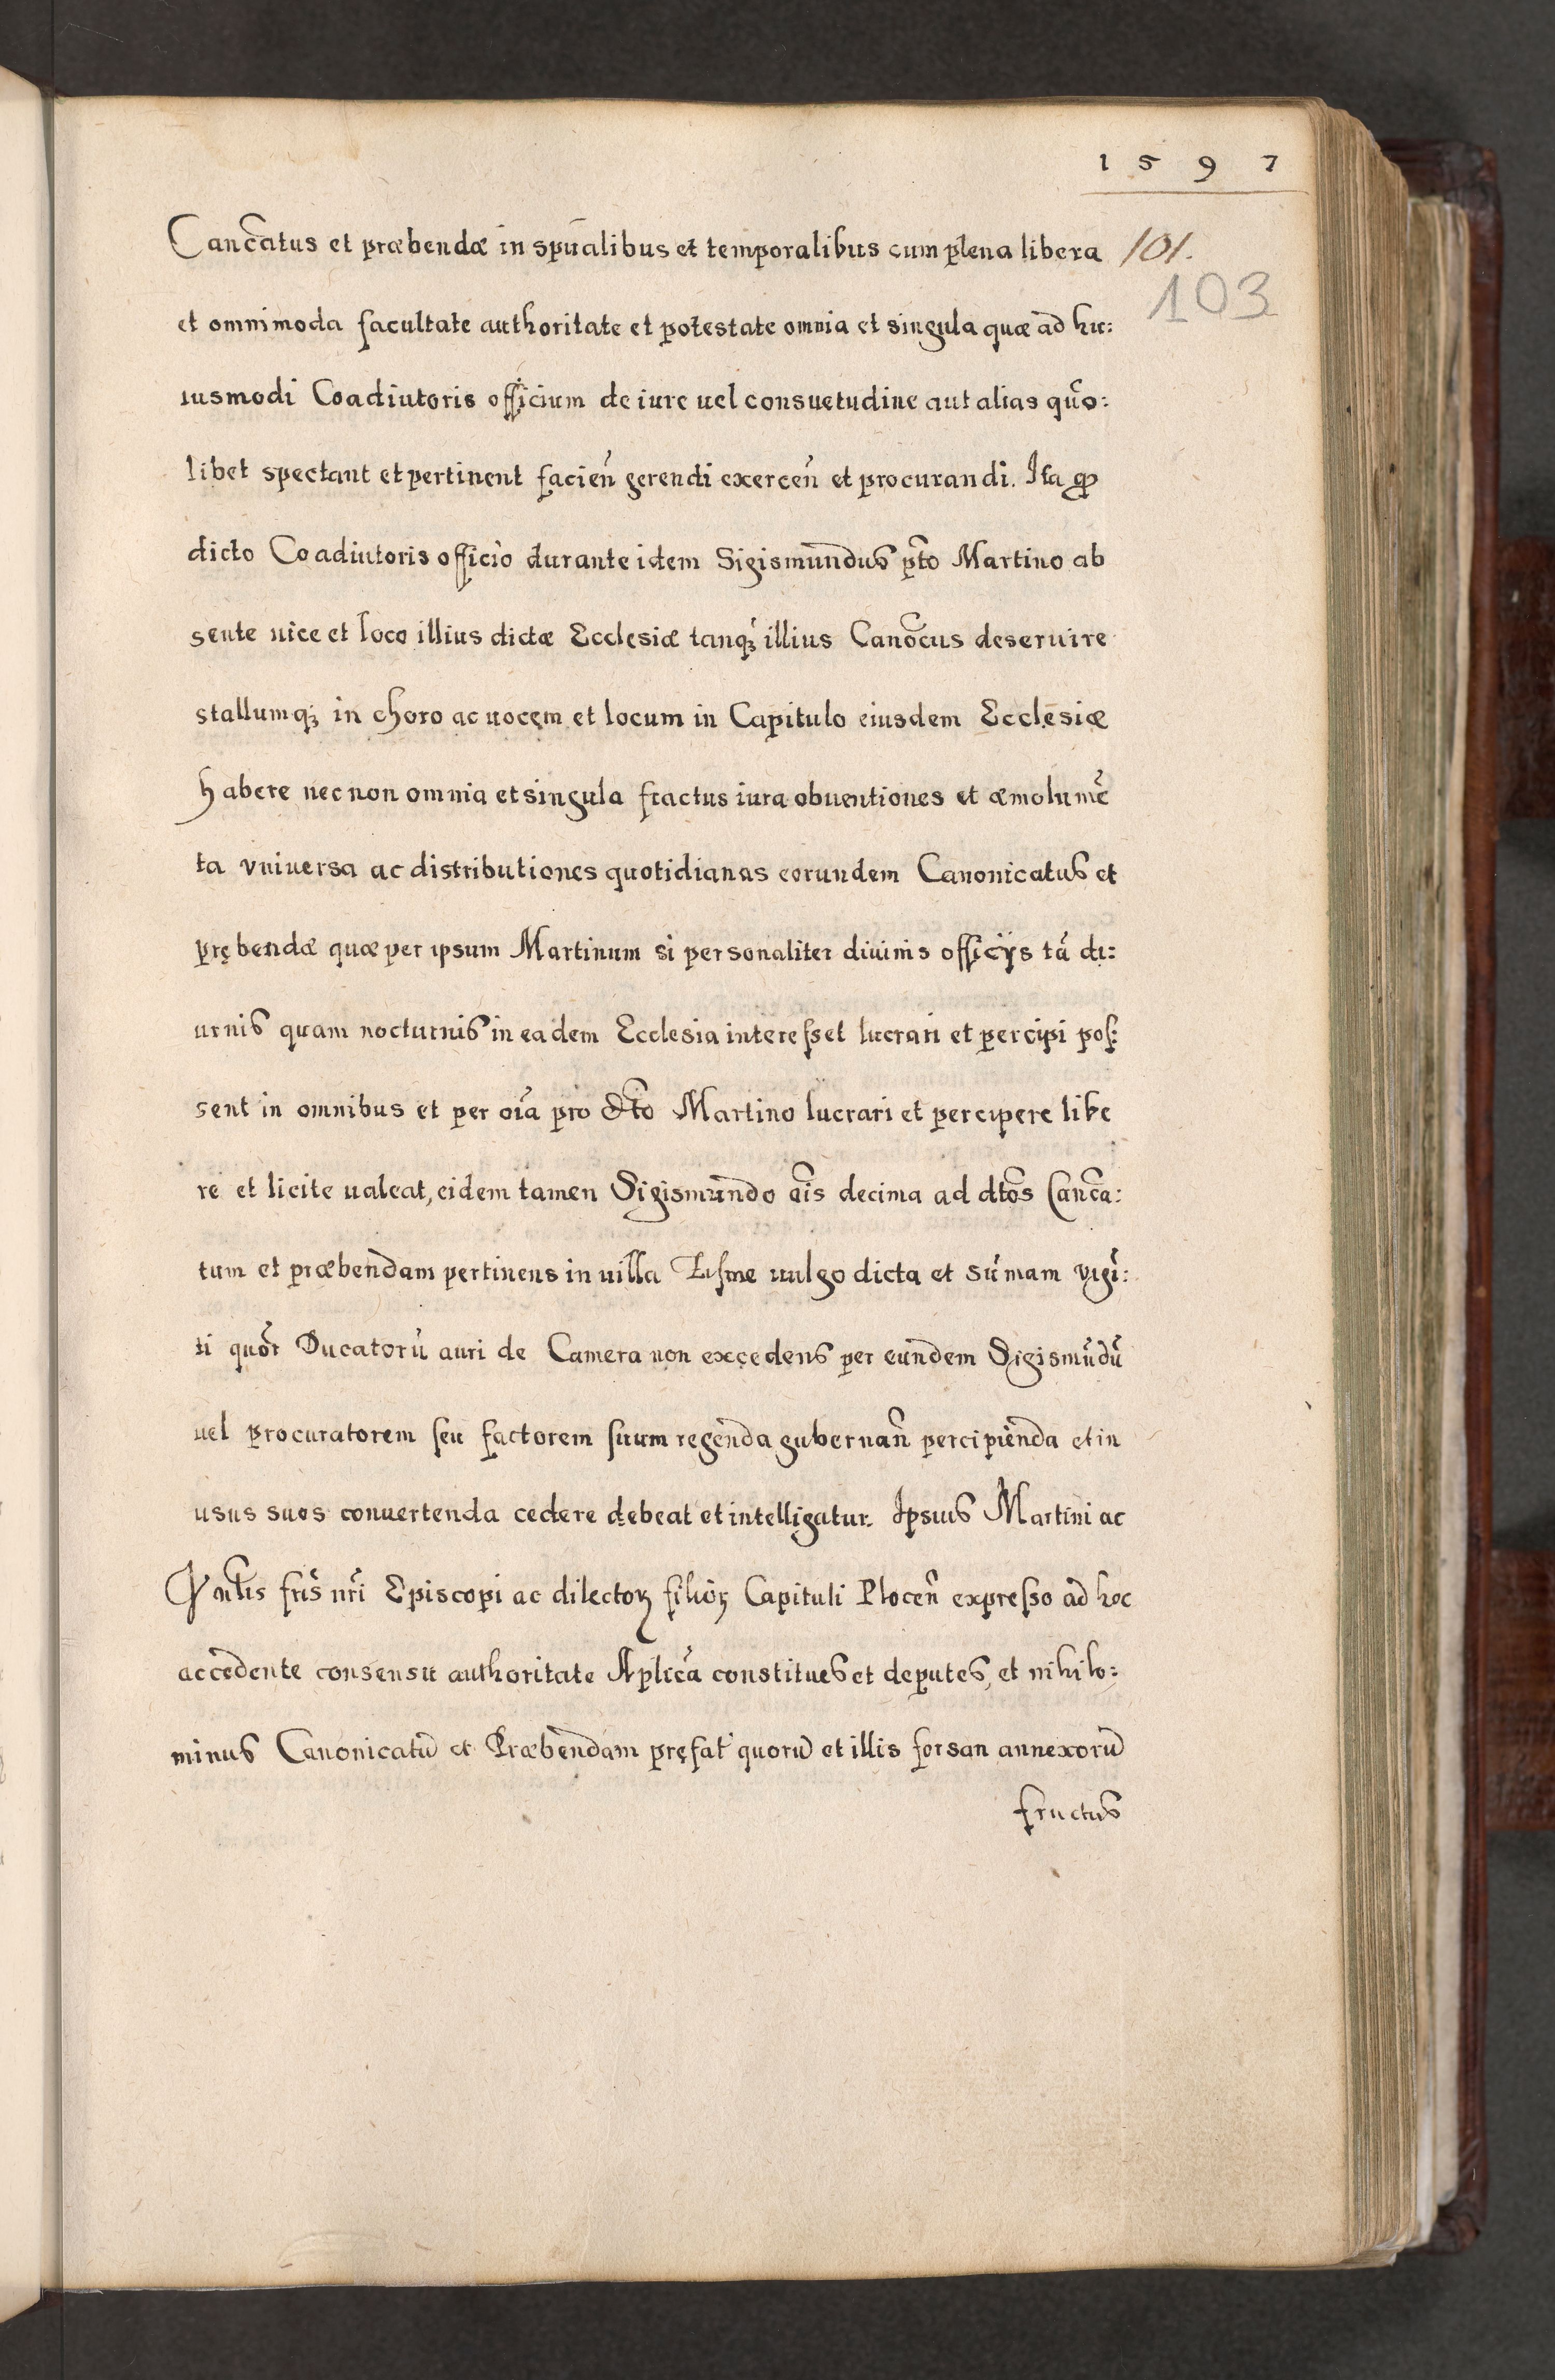 1597
Canc̃atus et præbendæ in spũalibus et temporalibus cum plena libera 101.
103
et omnimoda facultate authoritate et potestate omnia et singula quæ ad hu:
iusmodi Coadiutoris officium de iure uel consuetudine aut alias quõ:
libet spectant et pertinent facieñ gerendi exerceñ et procurandi. Ita ꝙ
dicto Coadiutoris officio durante idem Sigismundus p̃to Martino ab
sente uice et loco illius dictæ Ecclesiæ tanqꝫ illius Canõcus deseruire
stallumqꝫ in choro ac uocem et locum in Capitulo eiusdem Ecclesiæ
habere nec non omnia et singula fractus iura obuentiones et æmolumẽ
ta vniuersa ac distributiones quotidianas eorundem Canonicatus et
prębendæ quæ per ipsum Martinum si personaliter diuinis officijs tã di:
urnis quam nocturnis in eadem Ecclesia interesset lucrari et percipi pos:
sent in omnibus et per oĩa pro d̃to Martino lucrari et percipere libe
re et licite ualeat, eidem tamen Sigismundo q̃is decima ad dt̃os Canc̃a:
tum et præbendam pertinens in uilla uulgo dicta et sũmam vigĩ:
ti quõr Ducatorũ auri de Camera non excedens per eundem Sigismũdũ
uel procuratorem seu factorem suum regenda gubernañ percipienda et in
usus suos conuertenda cedere debeat et intelligatur. Ipsius Martini ac
fr̃is nr̃i Episcopi ac dilectoꝝ filioꝝ Capituli Ploceñ expresso ad hoc
accedente consensu authoritate Aplicã constitues et deputes, et nihilo:
minus Canonicatũ et Præbendam pręfat̃ quorũ et illis forsan annexorũ
fructus